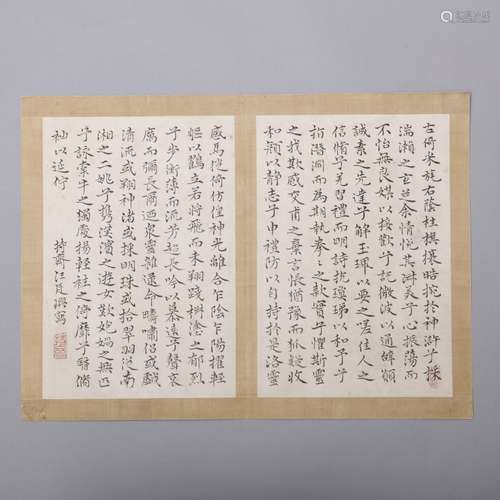 古倚采旄右蔭桂旗攘皓腕於神滸兮採
湍瀨之玄芝余情悅其淑美兮心振蕩而
不怡無良媒以接歡兮託微波以通辭願
誠素之先達兮解玉珮以要之嗟佳人之
信脩兮羌習禮而明詩抗瓊珶以和予兮
指潛淵而為期執拳拳之款實兮懼斯靈
之我欺感交甫之棄言悵猶豫而狐疑收
和顏以靜志兮申禮防以自持於是洛靈
感焉徙倚彷徨神光離合乍陰乍陽擢輕
軀以鶴立若將飛而未翔踐椒塗之郁烈
兮步蘅薄而流芳超長吟以慕遠兮聲哀
厲而彌長爾迺眾靈雜遝命疇嘯侶或戲
清流或翔神渚或採明珠或拾翠羽從南
湘之二姚兮攜漢濱之遊女歎匏媧之無匹
兮詠牽牛之獨處揚輕袿之倚靡兮翳脩
袖以延佇